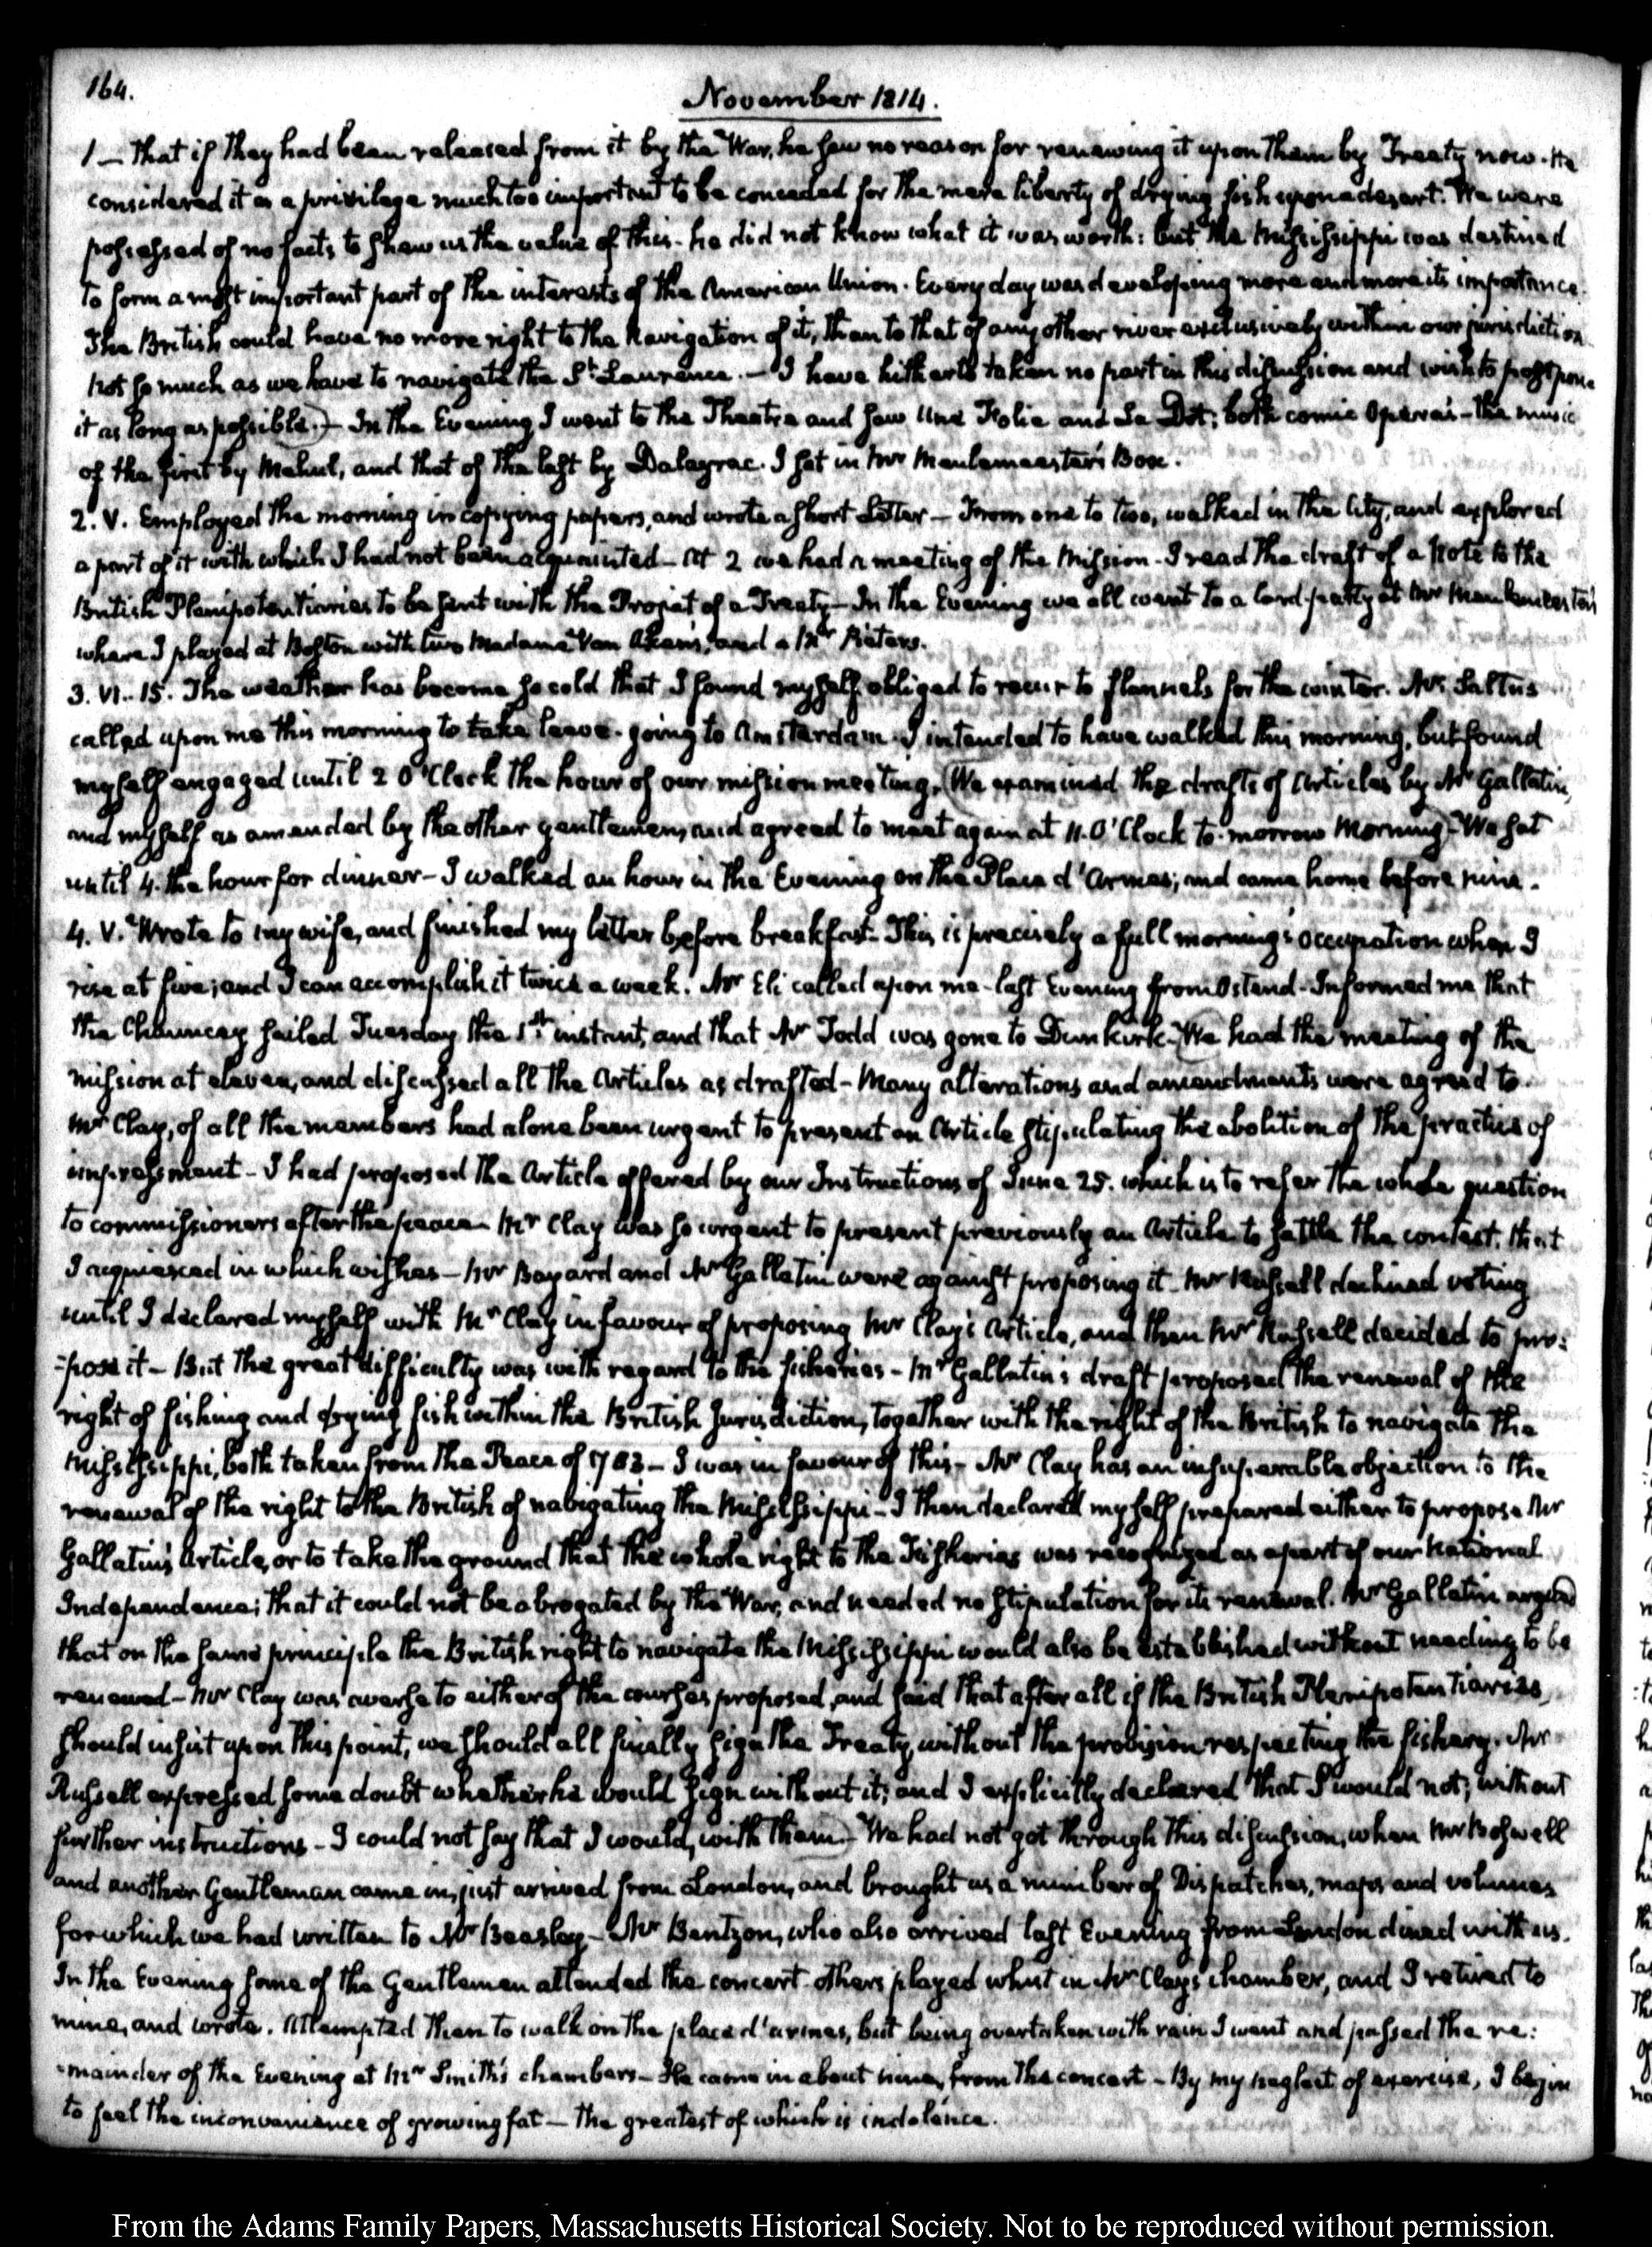 164.
November 1814.
1 — that if they had been released from it by the War, he saw no reason for renewing it upon them by Treaty now. He
considered it as a privilege much too important to be conceded for the mere liberty of drying fish upon a desert. We were
possessed of no facts to shew us the value of this. he did not know what it was worth: but the Mississippi was destined
to form a most important part of the interests of the American Union. Every day was developing more and more its importance.
The British could have no more right to the Navigation of it, than to that of any other river exclusively within our jurisdiction
not so much as we have to navigate the St. Laurence. — I have hitherto taken no part in this discussion and wish to postpone
it as long as possible.) — In the Evening I went to the Theatre and saw Une Folie and La Dot; both comic Opera's — the music
of the first by Mehul, and that of the last by Dalayrac. I sat in Mr Meulemeester's Box.
2. V. Employed the morning in copying papers, and wrote a short Letter — From one to two, walked in the City, and explored
a part of it with which I had not been acquainted — At 2 we had a meeting of the Mission. I read the draft of a Note to the
British Plenipotentiaries to be sent with the Projet of a Treaty — In the Evening we all went to a Card party at Mr Meulemeester's
where I played at Boston with two Madame Van Aken's, and a Mr Pieters.
3. VI. 15. The weather has become so cold that I found myself obliged to recur to flannels for the winter. Mr Saltus
called upon me this morning to take leave. going to Amsterdam. I intended to have walked this morning, but found
myself engaged until 2 O'Clock the hour of our mission meeting. (We examined the drafts of Articles by Mr Gallatin,
and myself as amended by the other gentlemen, and agreed to meet again at 11. O'Clock to-morrow Morning — We sat
until 4. the hour for dinner — I walked an hour in the Evening on the Place d'Armes; and came home before nine.
4. V. Wrote to my wife, and finished my letter before breakfast — This is precisely a full morning's occupation when I
rise at five; and I can accomplish it twice a week. Mr Eli called upon me last Evening from Ostend. Informed me that
the Chauncey sailed Tuesday the 1st. instant, and that Mr Todd was gone to Dunkirk — (We had the meeting of the
mission at eleven, and discussed all the Articles as drafted — Many alterations and amendments were agreed to.
Mr Clay, of all the members had alone been urgent to present an Article stipulating the abolition of the practice of
impressment — I had proposed the Article offered by our Instructions of June 25. which is to refer the whole question
to commissioners after the peace — Mr Clay was so urgent to present previously an Article to settle the contest. that
I acquiesced in which wishes — Mr Bayard and Mr Gallatin were against proposing it — Mr Russell declined voting
until I declared myself with Mr Clay in favour of proposing Mr Clay's Article, and then Mr Russell decided to pro:
-pose it — But the great difficulty was with regard to the fisheries — Mr Gallatin's draft proposed the renewal of the
right of fishing and drying fish within the British Jurisdiction, together with the right of the British to navigate the
Mississippi, both taken from the Peace of 1783 — I was in favour of this — Mr Clay has an insuperable objection to the
renewal of the right to the British of navigating the Mississippi — I then declared myself prepared either to propose Mr
Gallatin's Article, or to take the ground that the whole right to the Fisheries was recognized as a part of our National
Independence; that it could not be abrogated by the War, and needed no stipulation for its renewal. Mr Gallatin argued
that on the same principle the British right to navigate the Mississippi would also be established without needing to be
renewed — Mr Clay was averse to either of the courses proposed, and said that after all if the British Plenipotentiaries
should insist upon this point, we should all finally sign the Treaty, without the provision respecting the fishery. Mr
Russell expressed some doubt whether he would sign without it; and I explicitly declared that I would not; without
further instructions — I could not say that I would, with them.) — We had not got through this discussion, when Mr Boswell
and another Gentleman came in, just arrived from London, and brought us a number of Dispatches, maps and volumes
for which we had written to Mr Beasley — Mr Bentzon, who also arrived last Evening from London dined with us.
In the Evening some of the Gentlemen attended the concert. others played whist in Mr Clays chamber, and I retired to
mine, and wrote. Attempted then to walk on the place d'armes, but being overtaken with rain I went and passed the re:
-mainder of the Evening at Mr Smith's chambers — He came in about nine, from the concert — By my neglect of exercise, I begin
to feel the inconvenience of growing fat — the greatest of which is indolence.
From the Adams Family Papers, Massachusetts Historical Society. Not to be reproduced without permission.